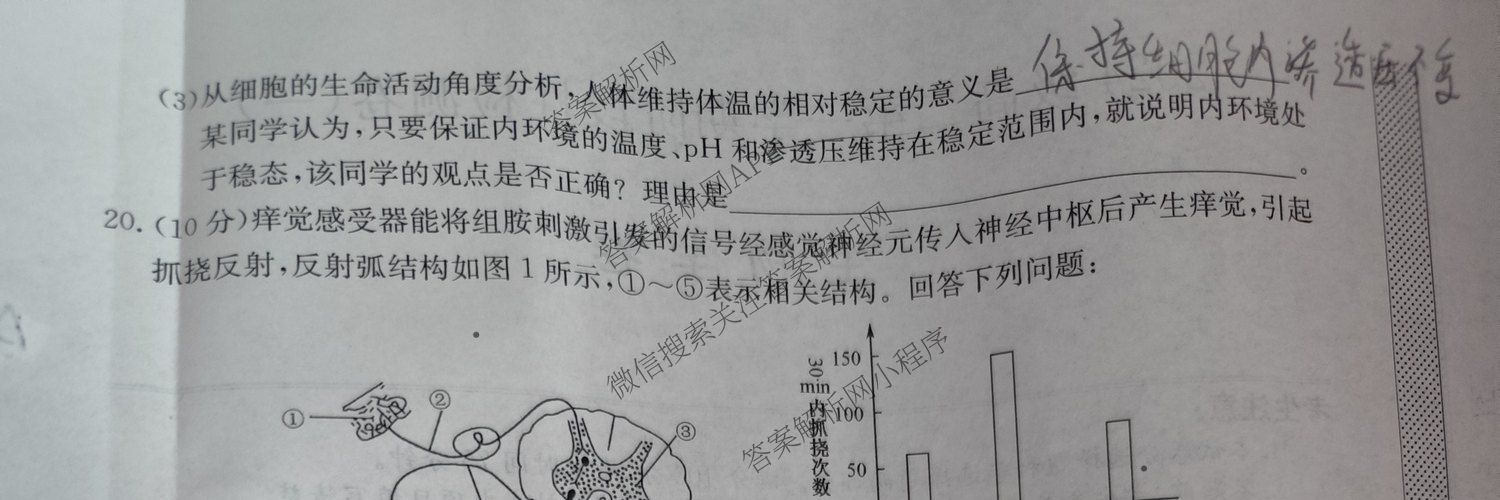 (3)从细胞的生命活动角度分析,人体维持体温的相对稳定的意义是 保持细胞内渗透压不变
某同学认为,只要保证内环境的温度、pH和渗透压维持在稳定范围内,就说明内环境处
于稳态,该同学的观点是否正确?理由是 。
20.(10分)痒觉感受器能将组胺刺激引发的信号经感觉神经元传入神经中枢后产生痒觉,引起
抓挠反射,反射弧结构如图1所示,①~⑤表示相关结构。回答下列问题:
① ② ③
30 min内抓挠次数
150
100
50
答案解析网
答案解析网APP
答案解析网
微信搜索关注答案解析网
答案解析网小程序